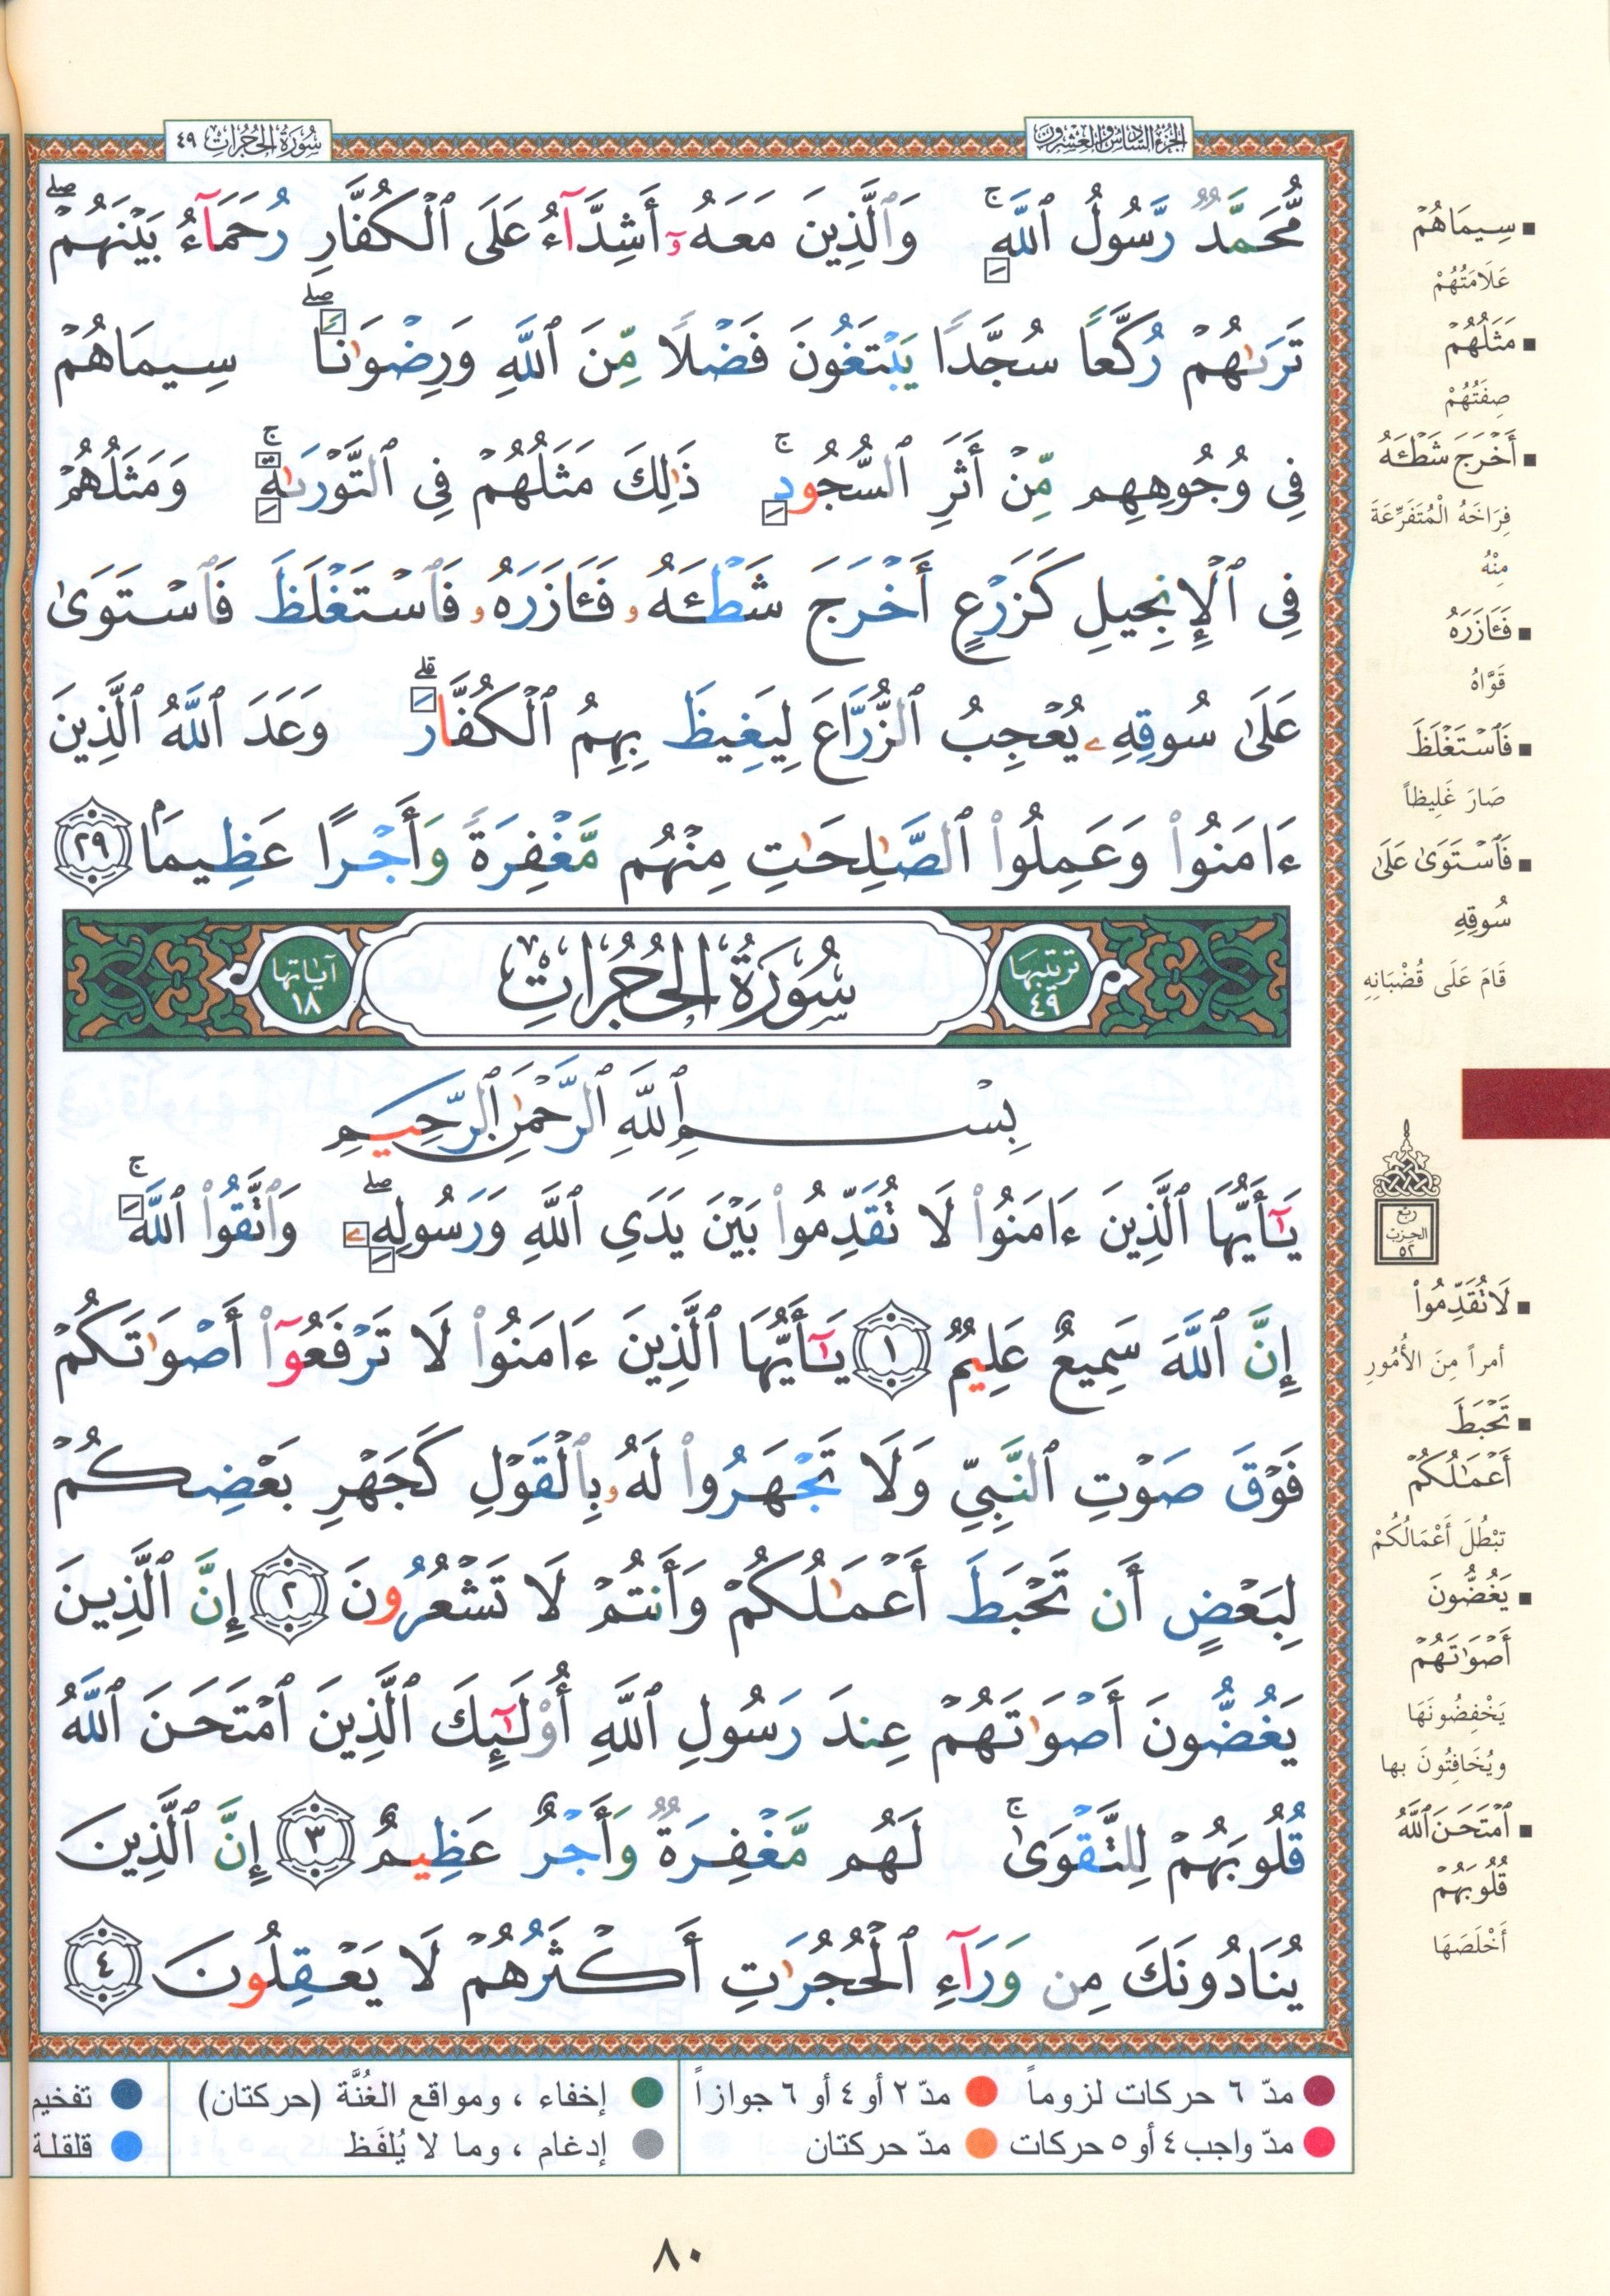 سُورَةُ الحُجُرَاتِ ٤٩
الجُزْءُ السَّادِسُ وَالعِشْرُونَ
مُّحَمَّدٌ رَّسُولُ ٱللَّهِ ۚ وَٱلَّذِينَ مَعَهُۥٓ أَشِدَّآءُ عَلَى ٱلْكُفَّارِ رُحَمَآءُ بَيْنَهُمْ ۖ
تَرَىٰهُمْ رُكَّعًا سُجَّدًا يَبْتَغُونَ فَضْلًا مِّنَ ٱللَّهِ وَرِضْوَٰنًا ۖ سِيمَاهُمْ
فِى وُجُوهِهِم مِّنْ أَثَرِ ٱلسُّجُودِ ۚ ذَٰلِكَ مَثَلُهُمْ فِى ٱلتَّوْرَىٰةِ ۚ وَمَثَلُهُمْ
فِى ٱلْإِنجِيلِ كَزَرْعٍ أَخْرَجَ شَطْـَٔهُۥ فَـَٔازَرَهُۥ فَٱسْتَغْلَظَ فَٱسْتَوَىٰ
عَلَىٰ سُوقِهِۦ يُعْجِبُ ٱلزُّرَّاعَ لِيَغِيظَ بِهِمُ ٱلْكُفَّارَ ۗ وَعَدَ ٱللَّهُ ٱلَّذِينَ
ءَامَنُوا۟ وَعَمِلُوا۟ ٱلصَّـٰلِحَـٰتِ مِنْهُم مَّغْفِرَةً وَأَجْرًا عَظِيمًۢا ٢٩
ترتيبها ٤٩
سُورَةُ الحُجُرَاتِ
آياتها ١٨
بِسْمِ ٱللَّهِ ٱلرَّحْمَـٰنِ ٱلرَّحِيمِ
يَـٰٓأَيُّهَا ٱلَّذِينَ ءَامَنُوا۟ لَا تُقَدِّمُوا۟ بَيْنَ يَدَىِ ٱللَّهِ وَرَسُولِهِۦ ۖ وَٱتَّقُوا۟ ٱللَّهَ ۚ
إِنَّ ٱللَّهَ سَمِيعٌ عَلِيمٌ ١ يَـٰٓأَيُّهَا ٱلَّذِينَ ءَامَنُوا۟ لَا تَرْفَعُوٓا۟ أَصْوَٰتَكُمْ
فَوْقَ صَوْتِ ٱلنَّبِىِّ وَلَا تَجْهَرُوا۟ لَهُۥ بِٱلْقَوْلِ كَجَهْرِ بَعْضِكُمْ
لِبَعْضٍ أَن تَحْبَطَ أَعْمَـٰلُكُمْ وَأَنتُمْ لَا تَشْعُرُونَ ٢ إِنَّ ٱلَّذِينَ
يَغُضُّونَ أَصْوَٰتَهُمْ عِندَ رَسُولِ ٱللَّهِ أُو۟لَـٰٓئِكَ ٱلَّذِينَ ٱمْتَحَنَ ٱللَّهُ
قُلُوبَهُمْ لِلتَّقْوَىٰ ۚ لَهُم مَّغْفِرَةٌ وَأَجْرٌ عَظِيمٌ ٣ إِنَّ ٱلَّذِينَ
يُنَادُونَكَ مِن وَرَآءِ ٱلْحُجُرَٰتِ أَكْثَرُهُمْ لَا يَعْقِلُونَ ٤
▪ سِيمَاهُمْ
عَلَامَتُهُمْ
▪ مَثَلُهُمْ
صِفَتُهُمْ
▪ أَخْرَجَ شَطْـَٔهُ
فِرَاخَهُ الْمُتَفَرِّعَةَ
مِنْهُ
▪ فَـَٔازَرَهُ
قَوَّاهُ
▪ فَٱسْتَغْلَظَ
صَارَ غَلِيظاً
▪ فَٱسْتَوَىٰ عَلَىٰ
سُوقِهِ
قَامَ عَلَى قُضْبَانِهِ
ربع
الحزب
٥٢
▪ لَا تُقَدِّمُوا۟
أمراً مِنَ الأُمُورِ
▪ تَحْبَطَ
أَعْمَـٰلُكُمْ
تَبْطُلَ أَعْمَالُكُمْ
▪ يَغُضُّونَ
أَصْوَٰتَهُمْ
يَخْفِضُونَهَا
ويُخَافِتُونَ بها
▪ ٱمْتَحَنَ ٱللَّهُ
قُلُوبَهُمْ
أَخْلَصَهَا
مدّ ٦ حركات لزوماً مدّ ٢ أو ٤ أو ٦ جوازاً
مدّ واجب ٤ أو ٥ حركات مدّ حركتان
إخفاء ، ومواقع الغُنَّة (حركتان)
إدغام ، وما لا يُلفَظ
تفخيم
قلقلة
٨٠